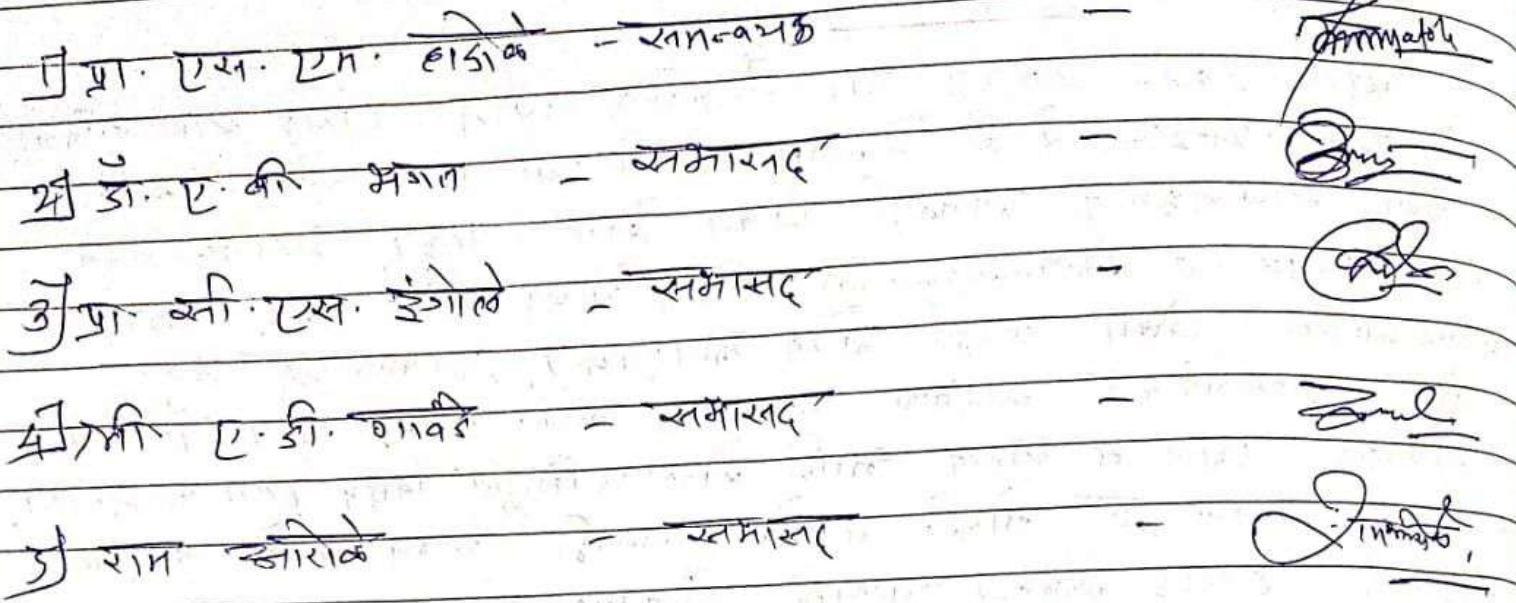 1] प्रा. एस. एम. हाडोळे - समन्वयक -
2] डॉ. ए. बी भगत - सभासद -
3] प्रा. सी. एस. इंगोले - सभासद -
4] श्री ए. डी. गावंडे - सभासद -
5] राम - सभासद -